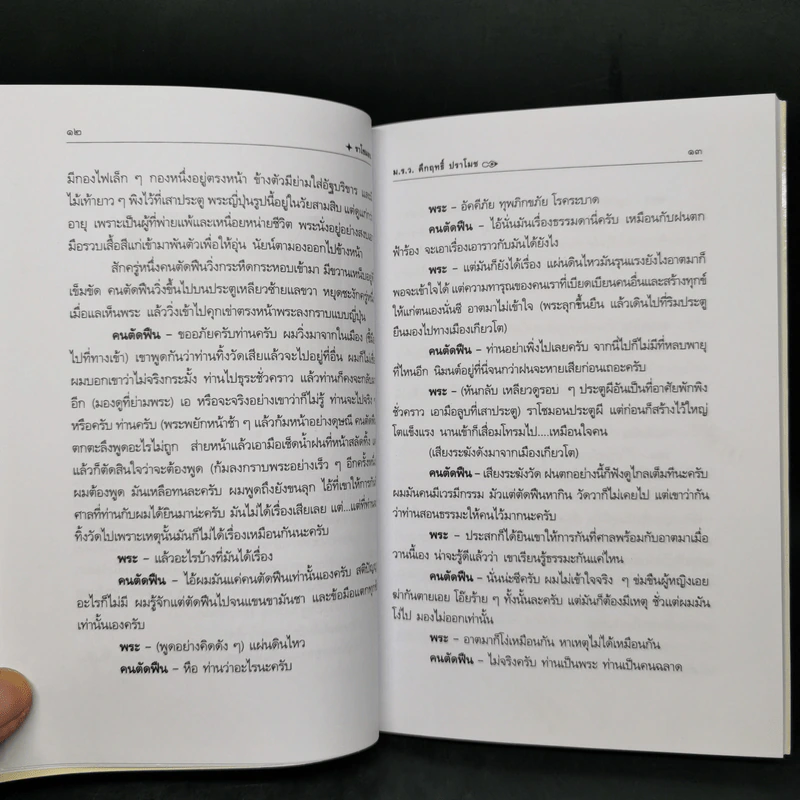 ๑๒
ราโชมอน
มีกองไฟเล็ก ๆ กองหนึ่งอยู่ตรงหน้า ข้างตัวมีย่ามใส่อัฐบริขาร และมี
ไม้เท้ายาว ๆ พิงไว้ที่เสาประตู พระญี่ปุ่นรูปนี้อยู่ในวัยสามสิบ แต่ดูแก่กว่า
อายุ เพราะเป็นผู้ที่พ่ายแพ้และเหนื่อยหน่ายชีวิต พระนั่งอยู่อย่างสงบ
มือรวบเสื้อสีแก่เข้ามาพันตัวเพื่อให้อุ่น นัยน์ตามองออกไปข้างหน้า
สักครู่หนึ่งคนตัดฟืนวิ่งกระหืดกระหอบเข้ามา มีขวานเหน็บอยู่ที่
เข็มขัด คนตัดฟืนวิ่งขึ้นไปบนประตูเหลียวซ้ายแลขวา หยุดชะงักครู่หนึ่ง
เมื่อแลเห็นพระ แล้ววิ่งเข้าไปคุกเข่าตรงหน้าพระลงกราบแบบญี่ปุ่น
คนตัดฟืน – ขออภัยครับท่านครับ ผมวิ่งมาจากในเมือง (ชี้มือ
ไปที่ทางเข้า) เขาพูดกันว่าท่านทิ้งวัดเสียแล้วจะไปอยู่ที่อื่น ผมก็ไม่เชื่อ
ผมบอกเขาว่าไม่จริงกระมั้ง ท่านไปธุระชั่วคราว แล้วท่านก็คงจะกลับมา
อีก (มองดูที่ย่ามพระ) เอ หรือจะจริงอย่างเขาว่าก็ไม่รู้ ท่านจะไปจริง ๆ
หรือครับ ท่านครับ (พระพยักหน้าช้า ๆ แล้วก้มหน้าอย่างดุษณี คนตัดฟืน
ตกตะลึงพูดอะไรไม่ถูก ส่ายหน้าแล้วเอามือเช็ดน้ำฝนที่หน้าสลัดทิ้ง
แล้วก็ตัดสินใจว่าจะต้องพูด (ก้มลงกราบพระอย่างเร็ว ๆ อีกครั้งหนึ่ง
ผมต้องพูด มันเหลือทนละครับ ผมพูดถึงยังขนลุก ไอ้ที่เขาให้การกัน
ศาลที่ท่านกับผมได้ยินมาน่ะครับ มันไม่ได้เรื่องเสียเลย แต่...แต่ที่ท่าน
ทิ้งวัดไปเพราะเหตุนั้นมันก็ไม่ได้เรื่องเหมือนกันนะครับ
พระ – แล้วอะไรบ้างที่มันได้เรื่อง
คนตัดฟืน – ไอ้ผมมันแค่คนตัดฟืนเท่านั้นเองครับ สติปัญญา
อะไรก็ไม่มี ผมรู้จักแต่ตัดฟืนไปจนแขนขามันชา และข้อมือแตก
เท่านั้นเองครับ
พระ – (พูดอย่างคิดดัง ๆ) แผ่นดินไหว
คนตัดฟืน – หือ ท่านว่าอะไรนะครับ
ม.ร.ว. คึกฤทธิ์ ปราโมช
๑๓
พระ – อัคคีภัย ทุพภิกขภัย โรคระบาด
คนตัดฟืน – ไอ้นั่นมันเรื่องธรรมดานี่ครับ เหมือนกับฝนตก
ฟ้าร้อง จะเอาเรื่องเอาราวกับมันได้ยังไง
พระ – แต่มันก็ยังได้เรื่อง แผ่นดินไหวมันรุนแรงยังไงอาตมาก็
พอจะเข้าใจได้ แต่ความทารุณของคนเราที่เบียดเบียนคนอื่นและสร้างทุกข์
ให้แก่ตนเองนั่นซี อาตมาไม่เข้าใจ (พระลุกขึ้นยืน แล้วเดินไปที่ริมประตู
ยืนมองไปทางเมืองเกียวโต)
คนตัดฟืน – ท่านอย่าเพิ่งไปเลยครับ จากนี้ไปก็ไม่มีที่หลบพายุ
ที่ไหนอีก นิมนต์อยู่ที่นี่จนกว่าฝนจะหายเสียก่อนเถอะครับ
พระ – (หันกลับ เหลียวดูรอบ ๆ ประตูผีอันเป็นที่อาศัยพักพิง
ชั่วคราว เอามือลูบที่เสาประตู) ราโชมอนประตูผี แต่ก่อนก็สร้างไว้ใหญ่
โตแข็งแรง นานเข้าก็เสื่อมโทรมไป....เหมือนใจคน
(เสียงระฆังดังมาจากเมืองเกียวโต)
คนตัดฟืน – เสียงระฆังวัด ฝนตกอย่างนี้ก็ฟังดูไกลเต็มทีนะครับ
ผมมันคนมีเวรมีกรรม มัวแต่ตัดฟืนหากิน วัดวาก็ไม่เคยไป แต่เขาว่ากัน
ว่าท่านสอนธรรมะให้คนไว้มากนะครับ
พระ – ประสกก็ได้ยินเขาให้การกันที่ศาลพร้อมกับอาตมาเมื่อ
วานนี้เอง น่าจะรู้ดีแล้วว่า เขาเรียนรู้ธรรมะกันแค่ไหน
คนตัดฟืน – นั่นน่ะซีครับ ผมไม่เข้าใจจริง ๆ ข่มขืนผู้หญิงเอย
ฆ่ากันตายเอย โอ๊ยร้าย ๆ ทั้งนั้นละครับ แต่มันก็ต้องมีเหตุ ชั่วแต่ผมมัน
โง่ไป มองไม่ออกเท่านั้น
พระ – อาตมาก็โง่เหมือนกัน หาเหตุไม่ได้เหมือนกัน
คนตัดฟืน – ไม่จริงครับ ท่านเป็นพระ ท่านเป็นคนฉลาด